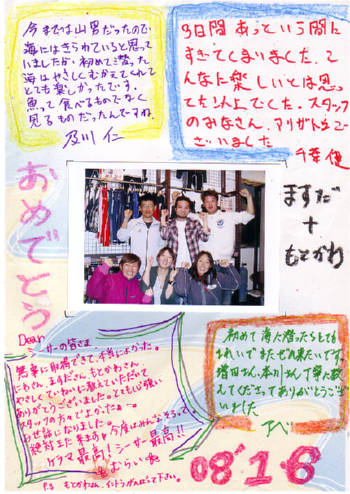 今までは山男だったので
海にはきらわれていると思って
いましたが、初めて潜った
海はやさしくむかえてくれて
とても楽しかったです。
魚って食べるものでなく
見るものだったんですね。
及川 仁
3日間 あっという間に
すぎてしまいました。こ
んなに楽しいとは思っ
てた以上でした。スタッフ
のみなさん、アリガトウご
ざいました
千葉 健
おめでとう
ますだ
+
もとかわ
Dear シーサーの皆さま
無事に取得できて、本当によかった。
にわさん、ますださん、もとかわさん、
やさしくていねいに教えていただいて
ありがとうございました。とても心強い
スタッフの方々でよかった。
お世話になりました。
絶対また来ます。今度はみんなそろって。
ケラマ最高!シーサー最高!!
むらい
P.S もとかわさん、がんばって下さい。
初めて海に潜ったらとても
きれいでまたぜひ来たいです。
増田さん、本川さん、丁寧に教
えてくださってありがとうござ
いました
アベ
08'1.6